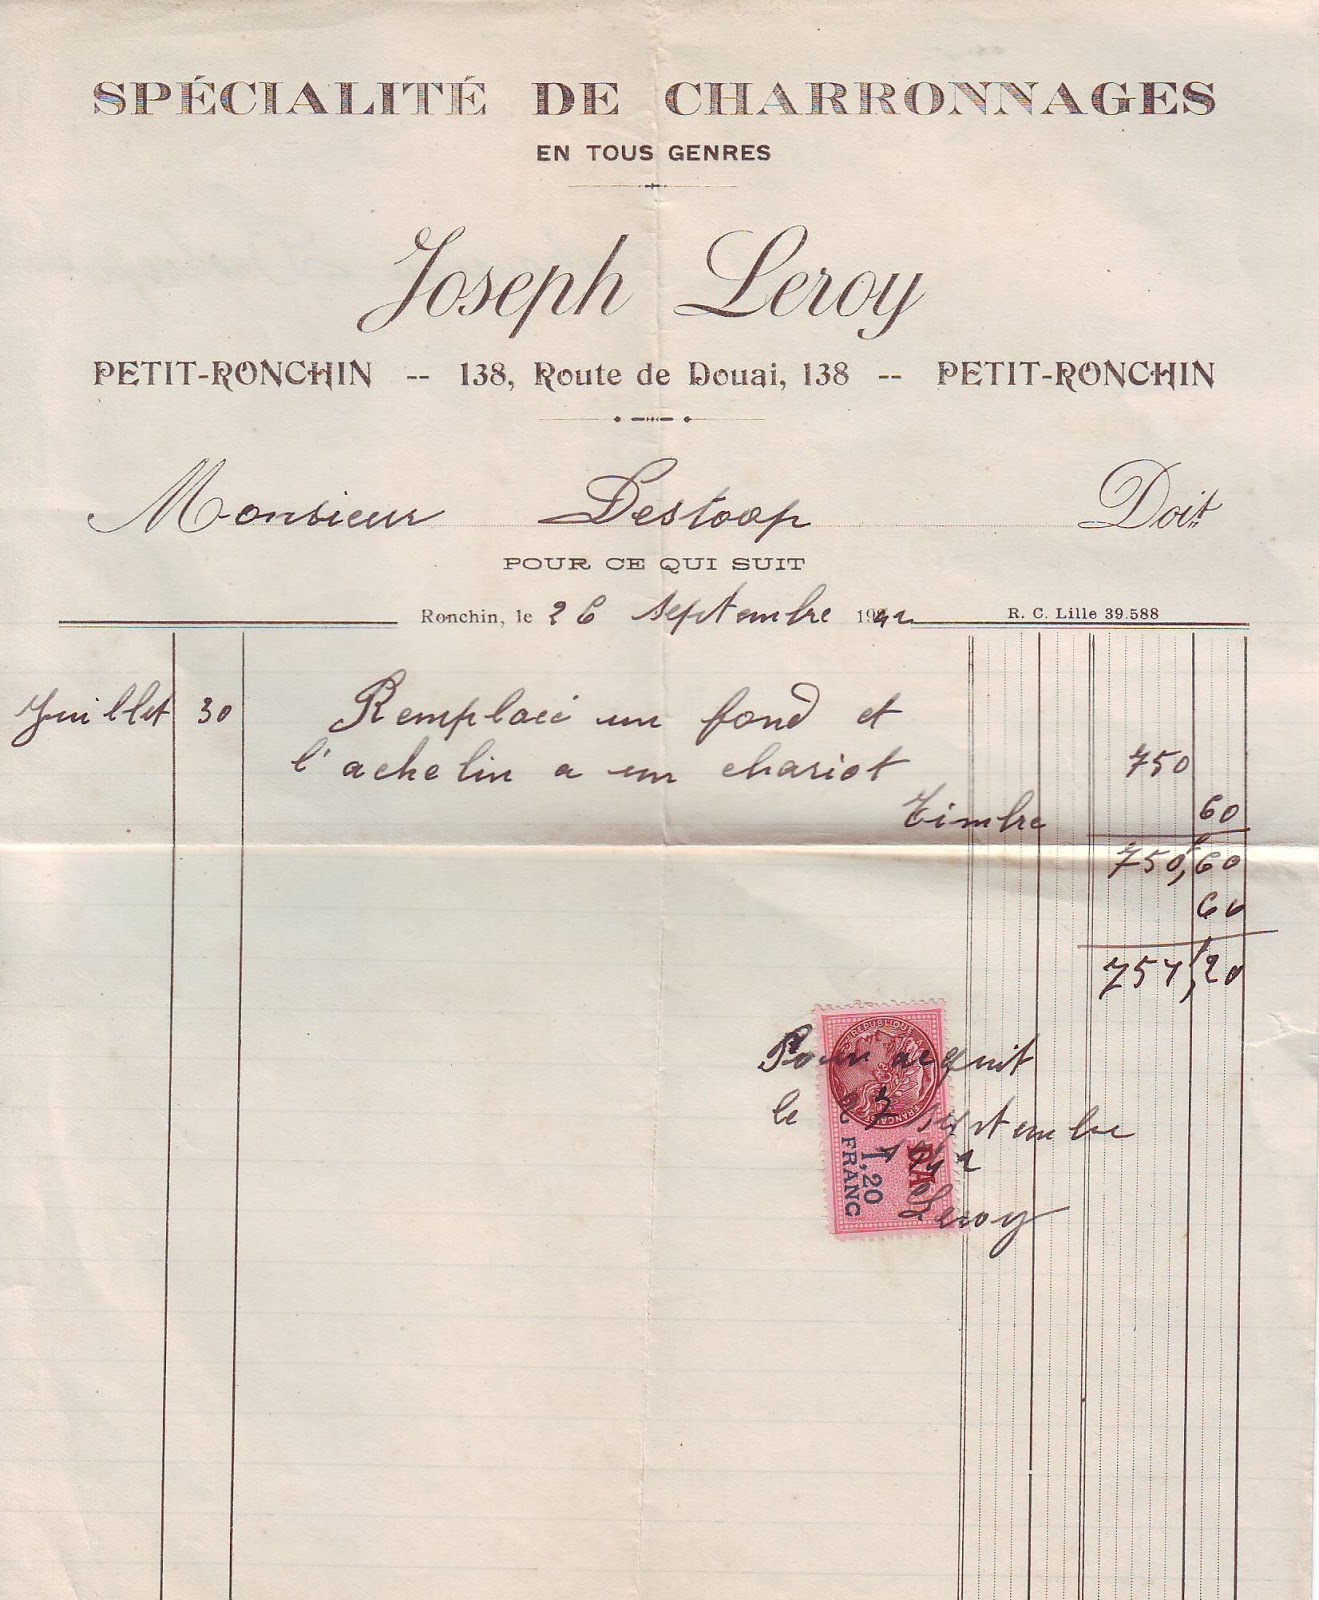 SPÉCIALITÉ DE CHARRONNAGES
EN TOUS GENRES
Joseph Leroy
PETIT-RONCHIN -- 138, Route de Douai, 138 -- PETIT-RONCHIN
Monsieur Destoop Doit
POUR CE QUI SUIT
Ronchin, le 26 septembre 1942 R. C. Lille 39.588
Juillet 30 Remplacé un fond et
l'achelin a un chariot 750
Timbre 60
750,60
60
751,20
Pour acquit
le septembre
1942
Leroy
REPUBLIQUE FRANÇAISE
1,20
FRANC